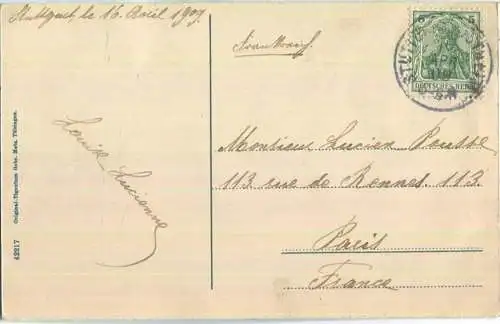 Stuttgart, le 16. Avril 1909.
Frankreich.
5 5
DEUTSCHES REICH
STUTTGART
Louise-Lucienne
Monsieur Lucien Pousse
113 rue de Rennes. 113.
Paris
France
42217 Original-Eigentum Gebr. Metz, Tübingen.